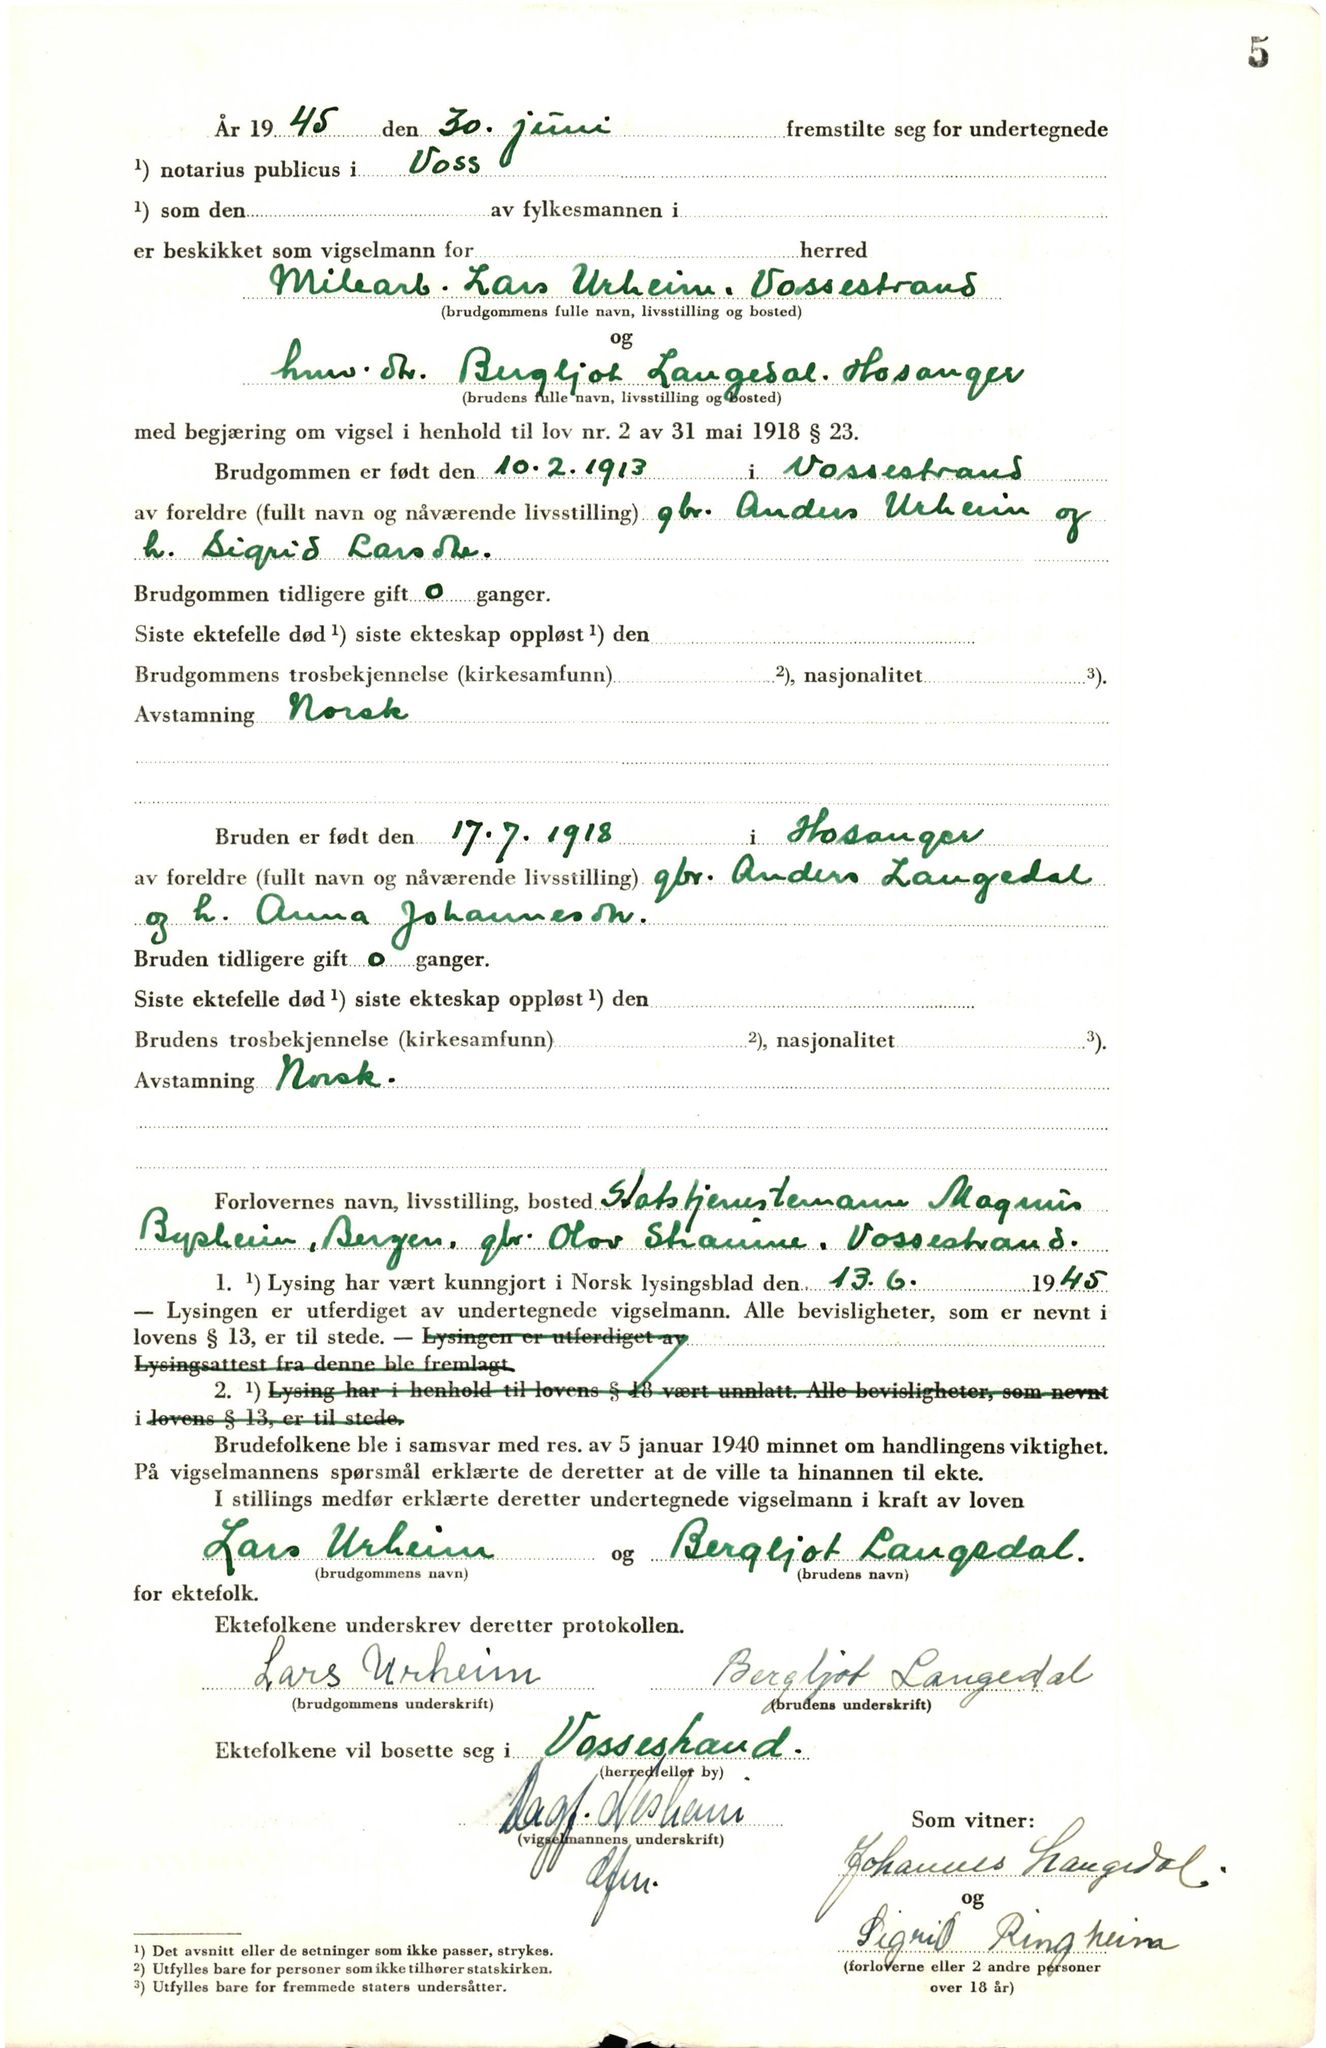 5
År 19 45 den 30. juni fremstilte seg for undertegnede
¹) notarius publicus i Voss
¹) som den av fylkesmannen i
er beskikket som vigselmann for herred
Milearb. Lars Urheim. Vossestrand
(brudgommens fulle navn, livsstilling og bosted)
og
hmv. dtr. Bergljot Langedal. Hosanger
(brudens fulle navn, livsstilling og bosted)
med begjæring om vigsel i henhold til lov nr. 2 av 31 mai 1918 § 23.
Brudgommen er født den 10.2.1913 i Vossestrand
av foreldre (fullt navn og nåværende livsstilling) gbr. Anders Urheim og
h. Sigrid Larsdtr.
Brudgommen tidligere gift 0 ganger.
Siste ektefelle død ¹) siste ekteskap oppløst ¹) den
Brudgommens trosbekjennelse (kirkesamfunn) ²), nasjonalitet ³).
Avstamning Norsk
Bruden er født den 17.7.1918 i Hosanger
av foreldre (fullt navn og nåværende livsstilling) gbr. Anders Langedal
og h. Anna Johannesdtr.
Bruden tidligere gift 0 ganger.
Siste ektefelle død ¹) siste ekteskap oppløst ¹) den
Brudens trosbekjennelse (kirkesamfunn) ²), nasjonalitet ³).
Avstamning Norsk.
Forlovernes navn, livsstilling, bosted Statstjenestemann Magnus
Bygheim, Bergen. gbr. Olov Straume. Vossestrand.
1. ¹) Lysing har vært kunngjort i Norsk lysingsblad den 13.6. 19 45
— Lysingen er utferdiget av undertegnede vigselmann. Alle bevisligheter, som er nevnt i
lovens § 13, er til stede. — Lysingen er utferdiget av
Lysingsattest fra denne ble fremlagt.
2. ¹) Lysing har i henhold til lovens § 18 vært unnlatt. Alle bevisligheter, som nevnt
i lovens § 13, er til stede.
Brudefolkene ble i samsvar med res. av 5 januar 1940 minnet om handlingens viktighet.
På vigselmannens spørsmål erklærte de deretter at de ville ta hinannen til ekte.
I stillings medfør erklærte deretter undertegnede vigselmann i kraft av loven
Lars Urheim og Bergljot Langedal.
(brudgommens navn) (brudens navn)
for ektefolk.
Ektefolkene underskrev deretter protokollen.
Lars Urheim Bergljot Langedal
(brudgommens underskrift) (brudens underskrift)
Ektefolkene vil bosette seg i Vossestrand.
(herred eller by)
Dagf. Nesheim
(vigselmannens underskrift)
Som vitner:
Johannes Langedal.
og
Sigrid Ringheim
(forloverne eller 2 andre personer
over 18 år)
¹) Det avsnitt eller de setninger som ikke passer, strykes.
²) Utfylles bare for personer som ikke tilhører statskirken.
³) Utfylles bare for fremmede staters undersåtter.